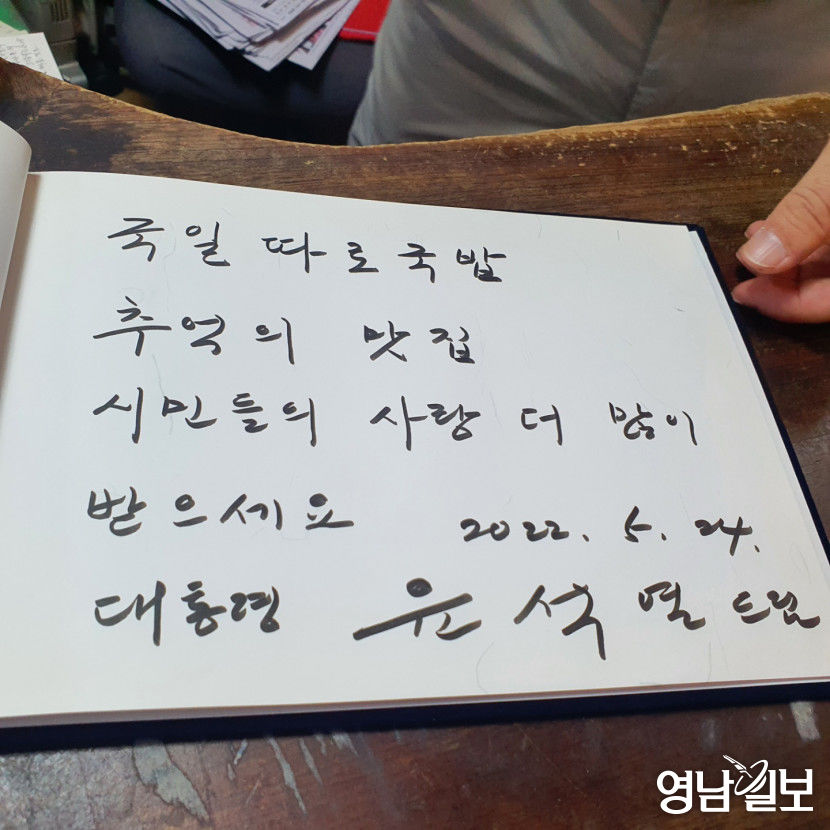 국일 따로국밥
추억의 맛집
시민들의 사랑 더 많이
받으세요 2022. 5. 24.
대통령 윤석열 드림
영남일보